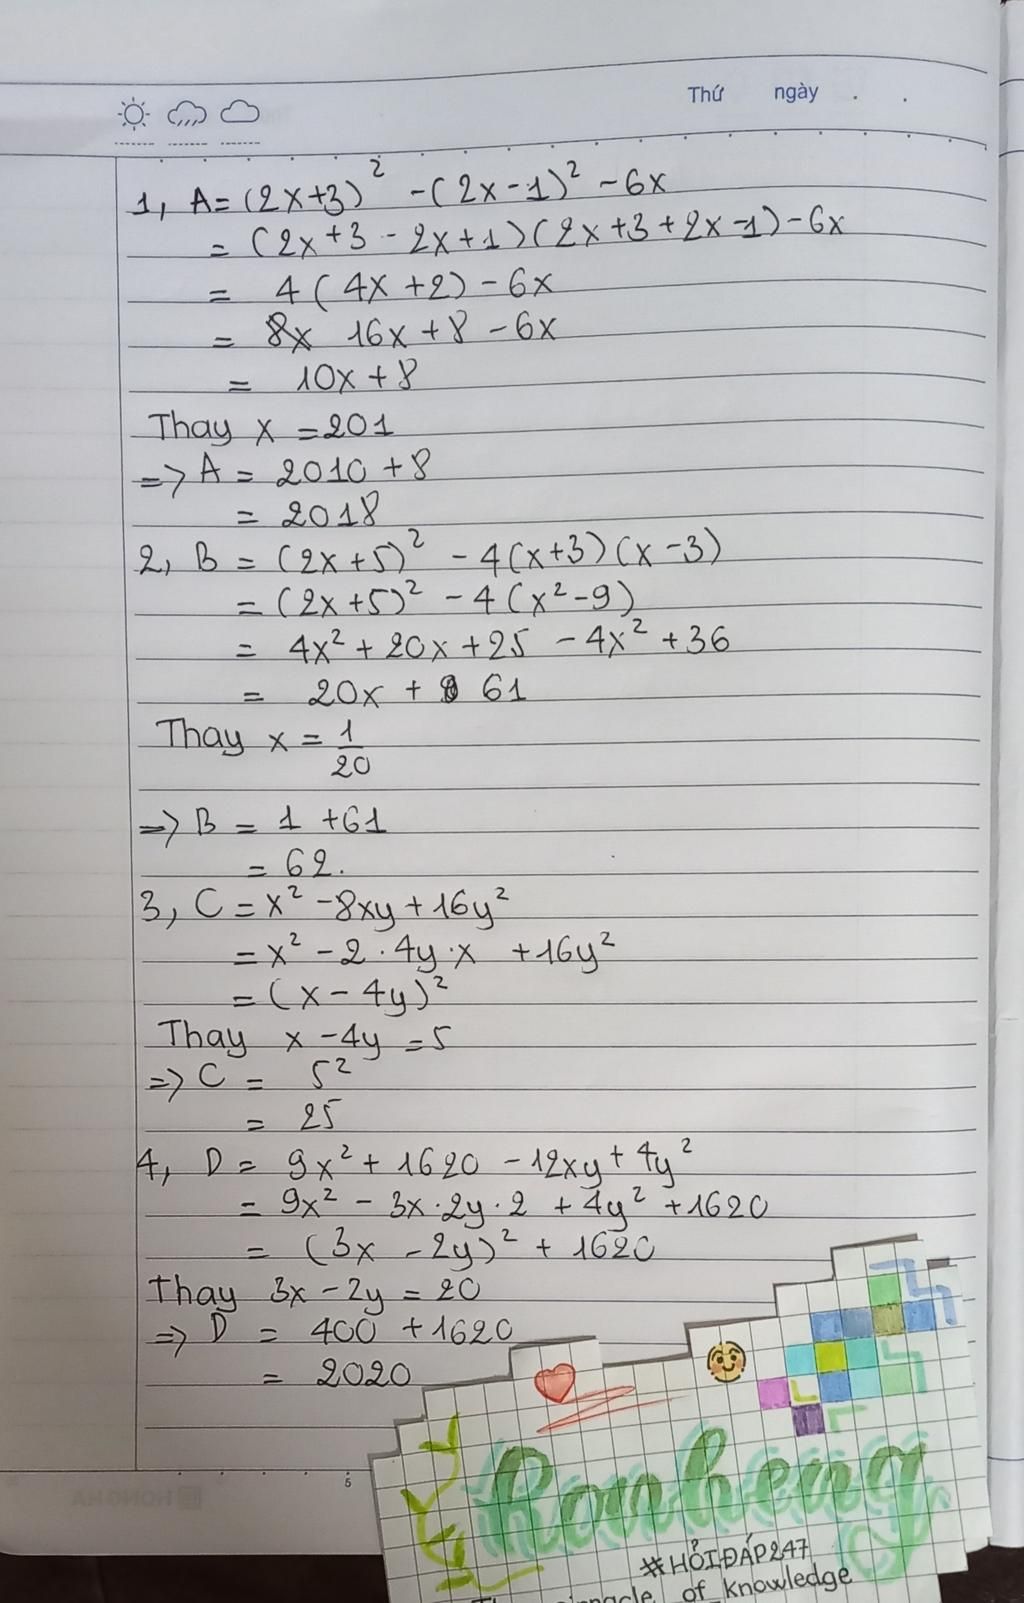 Thứ ngày . .
1, A = (2x+3)² - (2x-1)² - 6x
= (2x+3 - 2x+1)(2x+3+2x-1) - 6x
= 4(4x+2) - 6x
= 8x 16x + 8 - 6x
= 10x + 8
Thay x = 201
=> A = 2010 + 8
= 2018
2, B = (2x+5)² - 4(x+3)(x-3)
= (2x+5)² - 4(x²-9)
= 4x² + 20x + 25 - 4x² + 36
= 20x + 61
Thay x = 1/20
=> B = 1 + 61
= 62.
3, C = x² - 8xy + 16y²
= x² - 2.4y.x + 16y²
= (x - 4y)²
Thay x - 4y = 5
=> C = 5²
= 25
4, D = 9x² + 1620 - 12xy + 4y²
= 9x² - 3x.2y.2 + 4y² + 1620
= (3x - 2y)² + 1620
Thay 3x - 2y = 20
=> D = 400 + 1620
= 2020
5
#HỎIĐÁP247
of knowledge